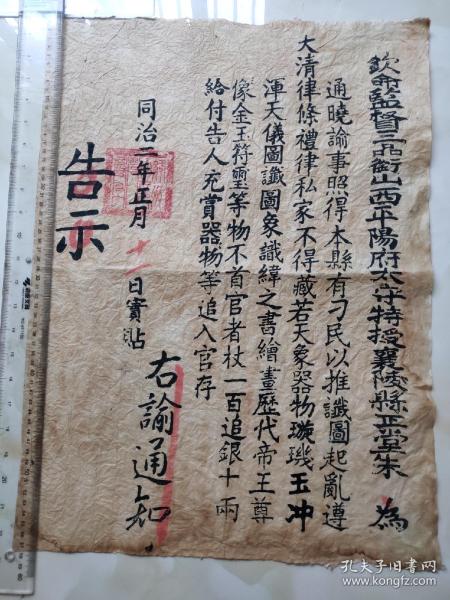 欽命監督三孔衔山西平陽府太守特授襄陵縣正堂朱 為
通曉諭事照得本縣有刁民以推讖圖起亂遵
大清律條禮律私家不得藏若天象器物璇璣玉冲
渾天儀圖讖圖象讖緯之書繪畫歷代帝王尊
像金玉符璽等物不首官者杖一百追銀十兩
給付告人充賞器物等追入官存
右諭通知
同治二年正月十一日實貼
告示
孔夫子旧书网
www.kongfz.com